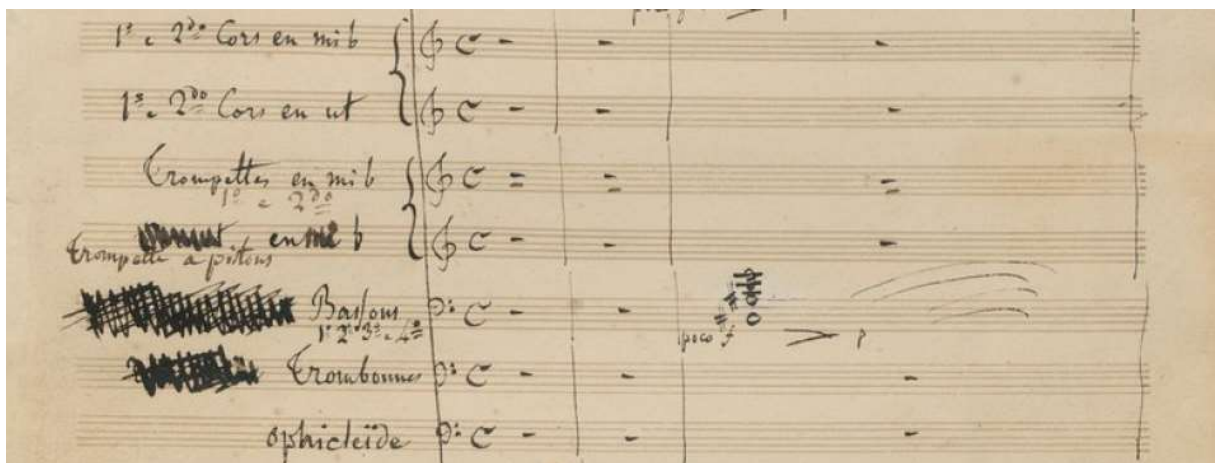 1º e 2do Cors en mi b
1º e 2do Cors en ut
Trompettes en mi b
1º e 2do
en mi b
Trompette a pistons
Bassons
1º 2º 3º e 4º
poco f p
Trombonnes
ophicleïde